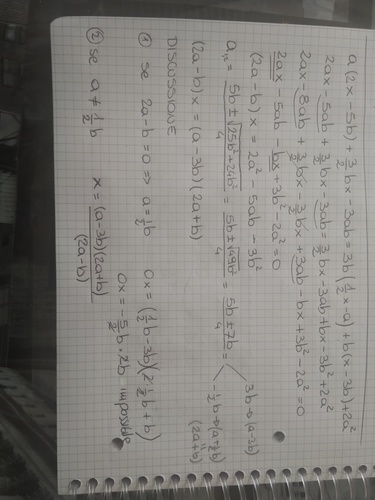 a(2x-5b)+3/2bx-3ab=3b(1/2x-a)+b(x-3b)+2a²
2ax-5ab+3/2bx-3ab=3/2bx-3ab+bx-3b²+2a²
2ax-8ab+3/2bx-3/2bx+3ab-bx+3b²-2a²=0
2ax-5ab-bx+3b²-2a²=0
(2a-b)x=2a²-5ab-3b²
3b→(a-3b)
a₁,₂=5b±√25b²+24b²/4=5b±√49b²/4=5b±7b/4=
-1/2b→(a+1/2b)
(2a+b)
(2a-b)x=(a-3b)(2a+b)
DISCUSSIONE
① se 2a-b=0 ⇒ a=1/2b 0x=(1/2b-3b)(2·1/2b+b)
0x=-5/2b·2b
② se a≠1/2b x=(a-3b)(2a+b)/(2a-b)